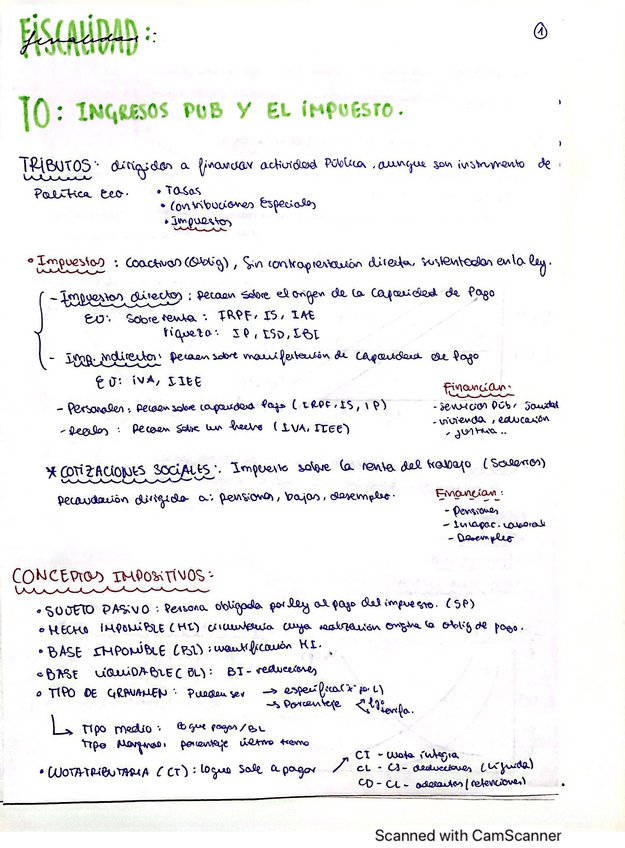 FISCALIDAD:
1
T0: INGRESOS PUB Y EL IMPUESTO.
TRIBUTOS: dirigidos a financiar actividad Pública, aunque son instrumento de
Política Eco.
• Tasas
• Contribuciones Especiales
• Impuestos
• Impuestos: Coactivos (Oblig), Sin contraprestación directa, sustentados en la ley.
- Impuestos directos: Recaen sobre el origen de la Capacidad de Pago
EU: Sobre renta: IRPF, IS, IAE
riqueza: IP, ISD, IBI
- Imp. Indirectos: Recaen sobre manifestación de Capacidad de Pago
EU: IVA, IIEE
- Personales: Recaen sobre capacidad Pago (IRPF, IS, IP)
- Reales: Recaen Sobre un hecho (IVA, IIEE)
Financian:
- Servicios Púb, Sanidad
- vivienda, educación
- justicia..
* COTIZACIONES SOCIALES: Impuesto sobre la renta del trabajo (Salarios)
Recaudación dirigida a: pensiones, bajas, desempleo.
Financian:
- Pensiones
- Incapac. laboral
- Desempleo
CONCEPTOS IMPOSITIVOS:
• SUJETO PASIVO: Persona obligada por ley al pago del impuesto. (SP)
• HECHO IMPONIBLE (HI) circunstancia cuya realización origina la oblig de pago.
• BASE IMPONIBLE (BI): cuantificación HI.
• BASE LIQUIDABLE (BL): BI - reducciones
• TIPO DE GRAVAMEN: Pueden ser → específica (x por L)
→ Porcentaje
tarifa.
↳ Tipo medio: lo que pagas/BL
Tipo Marginal: porcentaje último tramo
• CUOTA TRIBUTARIA (CT): lo que sale a pagar
CI - Cuota íntegra
CL - CI - deducciones (Líquida)
CD - CL - adelantos (retenciones)
Scanned with CamScanner